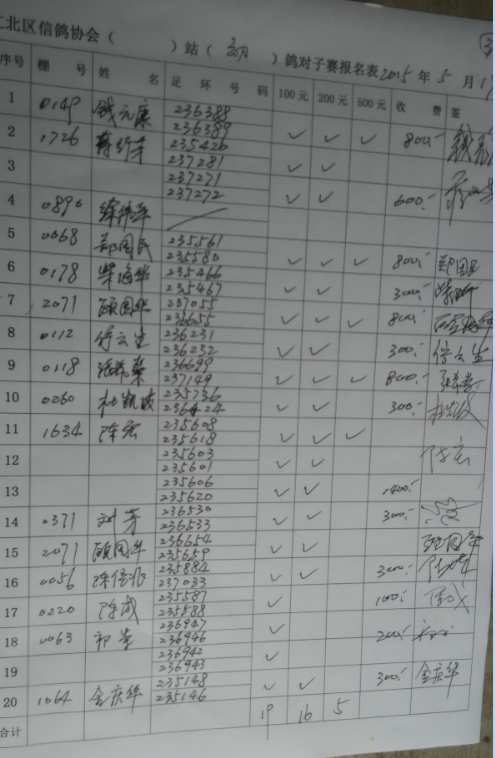 江北区信鸽协会（ ）站（ 幼 ）鸽对子赛报名表2015年5月17
序号 棚号 姓名 足环号码 100元 200元 500元 收费 签
1 0149 钱元康 236388 236389 ✓ ✓ ✓ 800.-
2 1726 235426 237281 ✓ ✓
3 237271 237272 ✓ ✓ 600.-
4 0890 徐伟萍
5 0068 郑国民 235561 235580 ✓ ✓ ✓ 800.- 郑国民
6 0178 柴海华 235466 235467 ✓ ✓ 300.-
7 2071 顾国华 237055 236655 ✓ ✓ ✓ 800.-
8 0112 徐云生 236231 236232 ✓ ✓ 300.- 徐云生
9 0118 236699 237149 ✓ ✓ ✓ 800.-
10 0060 杜凯波 235736 236424 ✓ ✓ 300.-
11 1634 陈宏 235608 235618 ✓ ✓ ✓
12 235603 235601 ✓ ✓ 陈宏
13 235606 235620 ✓ ✓ 1400.-
14 2371 刘芳 236530 236533 ✓ ✓ 300.-
15 2071 顾国华 236654 235659 ✓ ✓ 顾国华
16 0056 235884 237033 ✓ ✓ 300.-
17 0220 陈咸 235587 235588 ✓ 100.-
18 0063 236947 236946 ✓ 200.-
19 236942 236943 ✓
20 1064 金庆华 235148 235146 ✓ ✓ 300.- 金庆华
合计 19 16 5